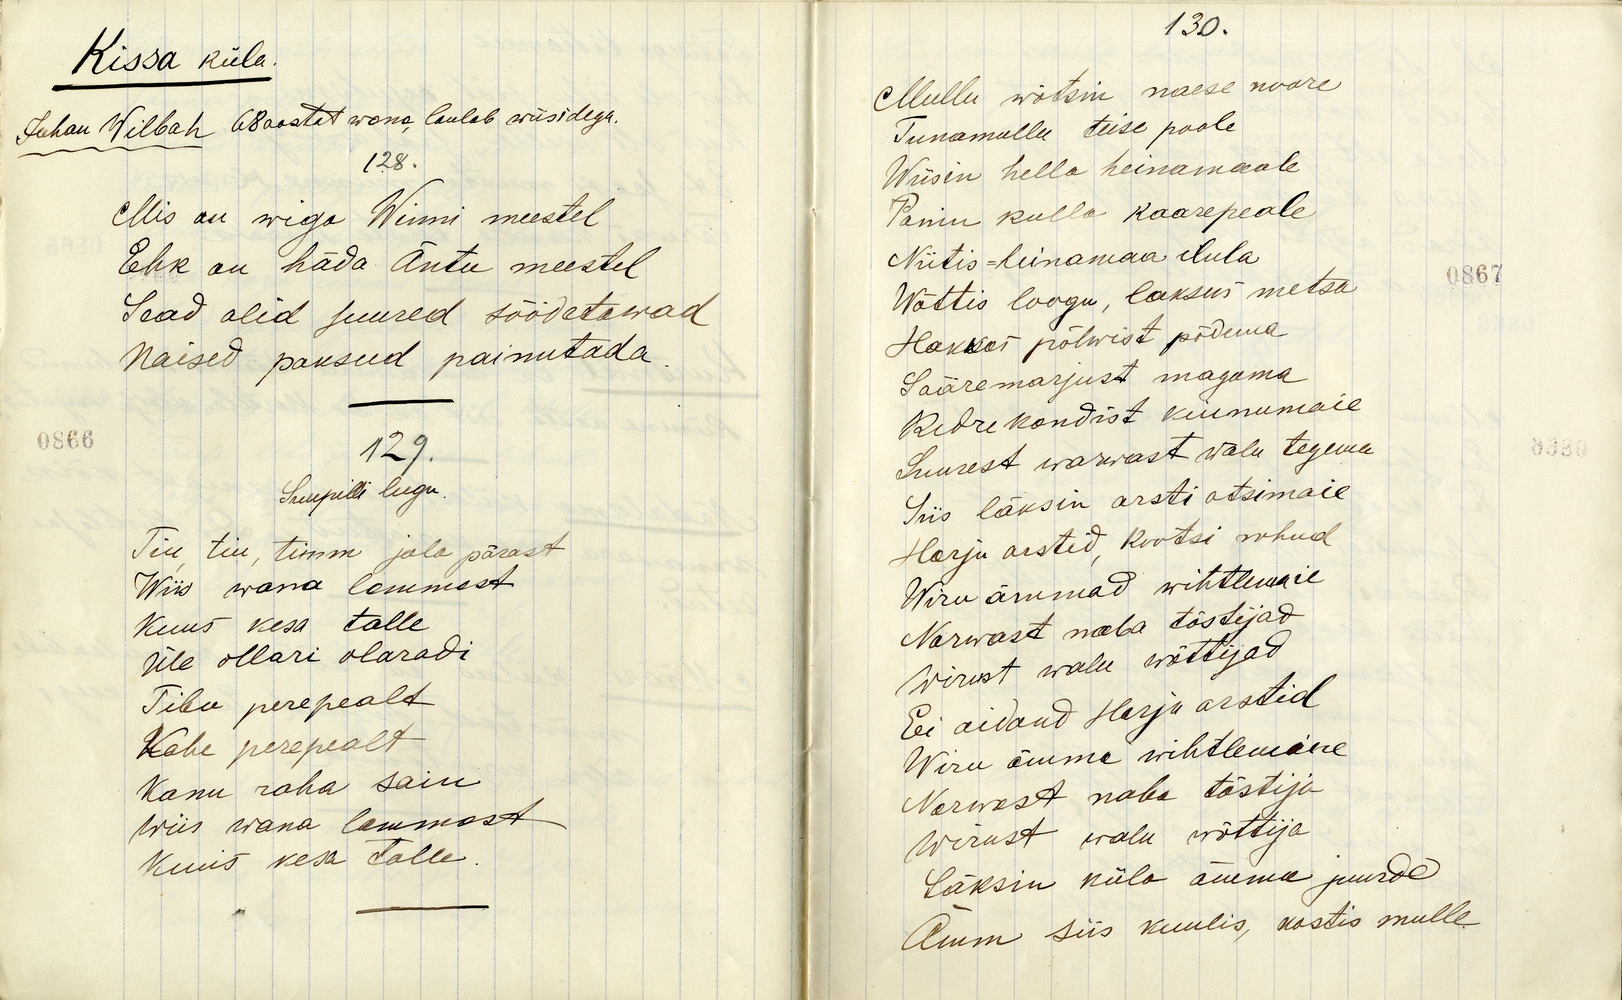 Kissa küla.
Juhan Wilbah 68 aastat wana, laulab wiisidega.
128.
Mis on wiga Winni meestel
Ehk on häda Äntu meestel
Sead olid suured söödetawad
Naised paksud painutada.
129.
Suupilli lugu.
Tiu, tiu, timm jala pärast
Wiis wana lammast
Kuus kesa talle
Üle ollari olaradi
Tibu perepealt
Kahe perepealt
Kanu raha sain
Wiis wana lammast
Kuus kesa talle.
0866
130.
Mullu wõtsin naese noore
Tunamullu teise poole
Wiisin hella heinamaale
Panin kulla kaarepeale
Niitis heinamaa ilula
Wõttis loogu, laksus metsa
Hakkas põlwist põdema
Sääremarjust magama
Kedrekondist kiunumaie
Suurest warwast walu tegema
Siis läksin arsti otsimaie
Harju arstid, Rootsi rohud
Wiru ämmad wihtlemaie
Narwast naba tõstijad
Wirust walu wõttijad
Ei aidand Harju arstid
Wiru ämma wihtlemäne
Narwast naba tõstija
Wirust walu wõttija
Läksin küla ämma juurde
Ämm siis kuulis, kostis mulle
0867